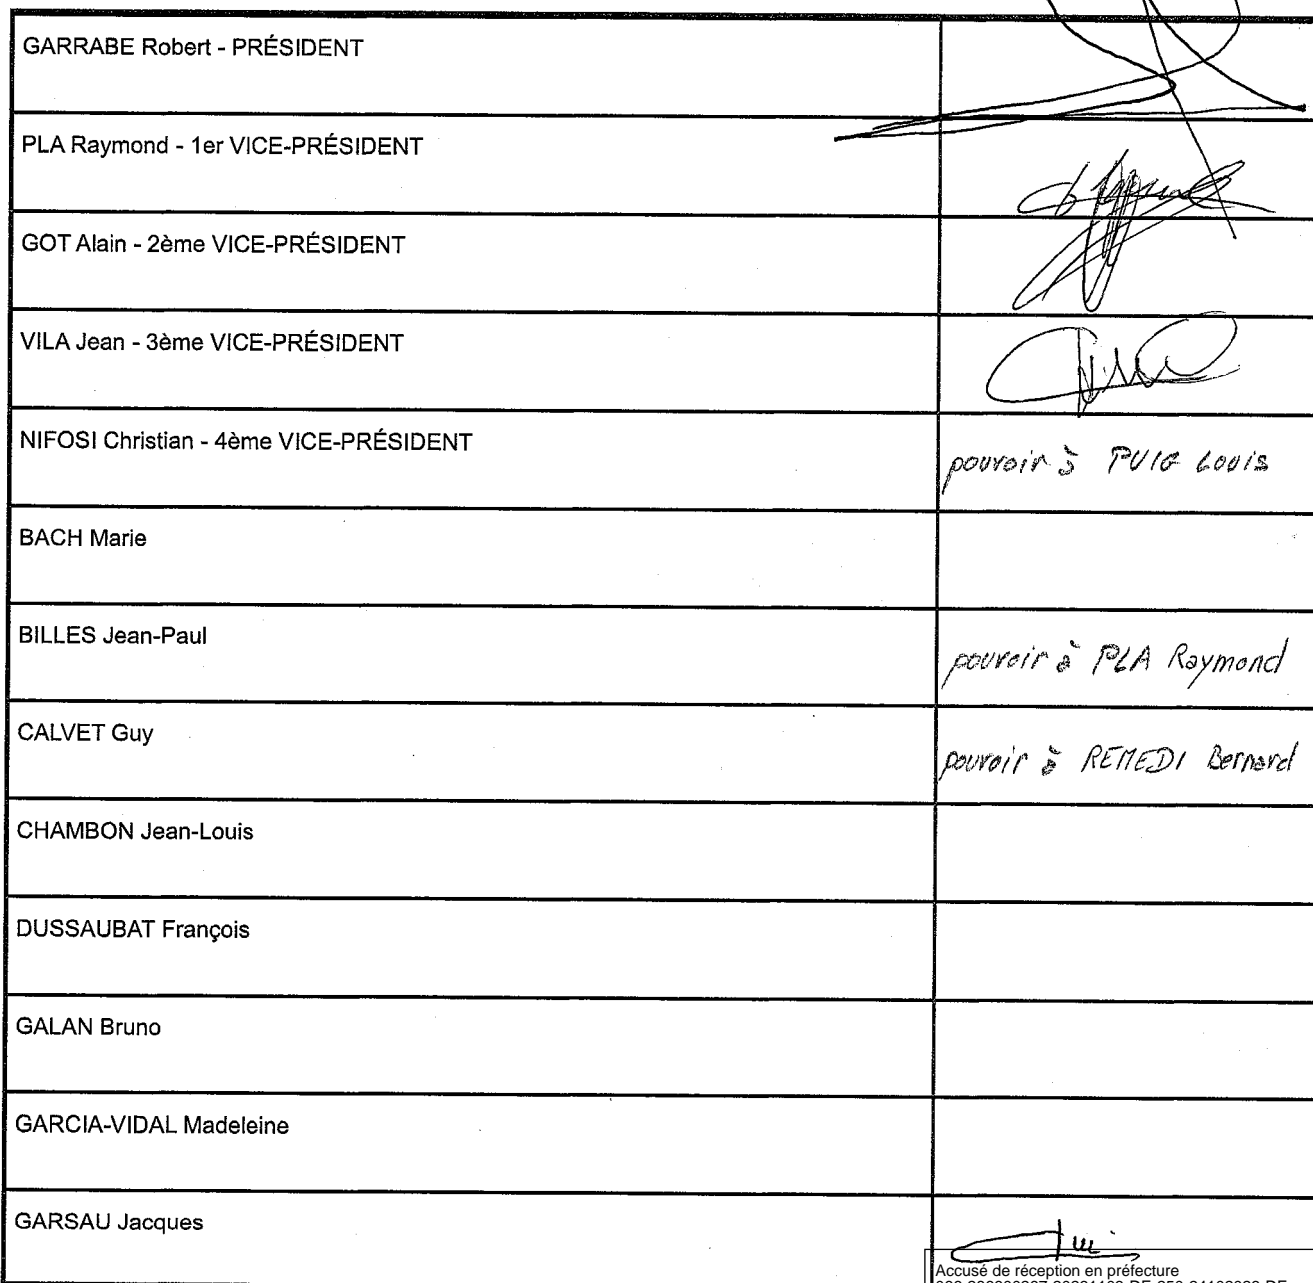 GARRABE Robert - PRÉSIDENT
PLA Raymond - 1er VICE-PRÉSIDENT
GOT Alain - 2ème VICE-PRÉSIDENT
VILA Jean - 3ème VICE-PRÉSIDENT
NIFOSI Christian - 4ème VICE-PRÉSIDENT
pouvoir à PUIG Louis
BACH Marie
BILLES Jean-Paul
pouvoir à PLA Raymond
CALVET Guy
pouvoir à REMEDI Bernard
CHAMBON Jean-Louis
DUSSAUBAT François
GALAN Bruno
GARCIA-VIDAL Madeleine
GARSAU Jacques
Accusé de réception en préfecture